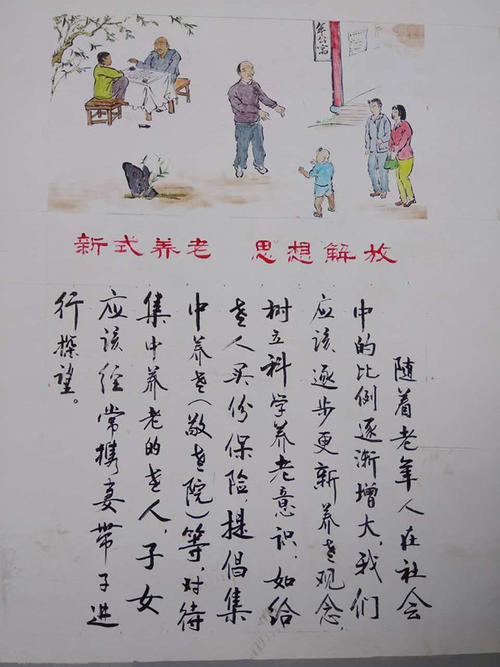 年公寓
新式养老 思想解放
随着老年人在社会
中的比例逐渐增大,我们
应该逐步更新养老观念,
树立科学养老意识,如给
老人买份保险,提倡集
中养老(敬老院)等,对待
集中养老的老人,子女
应该经常携妻带子进
行探望。